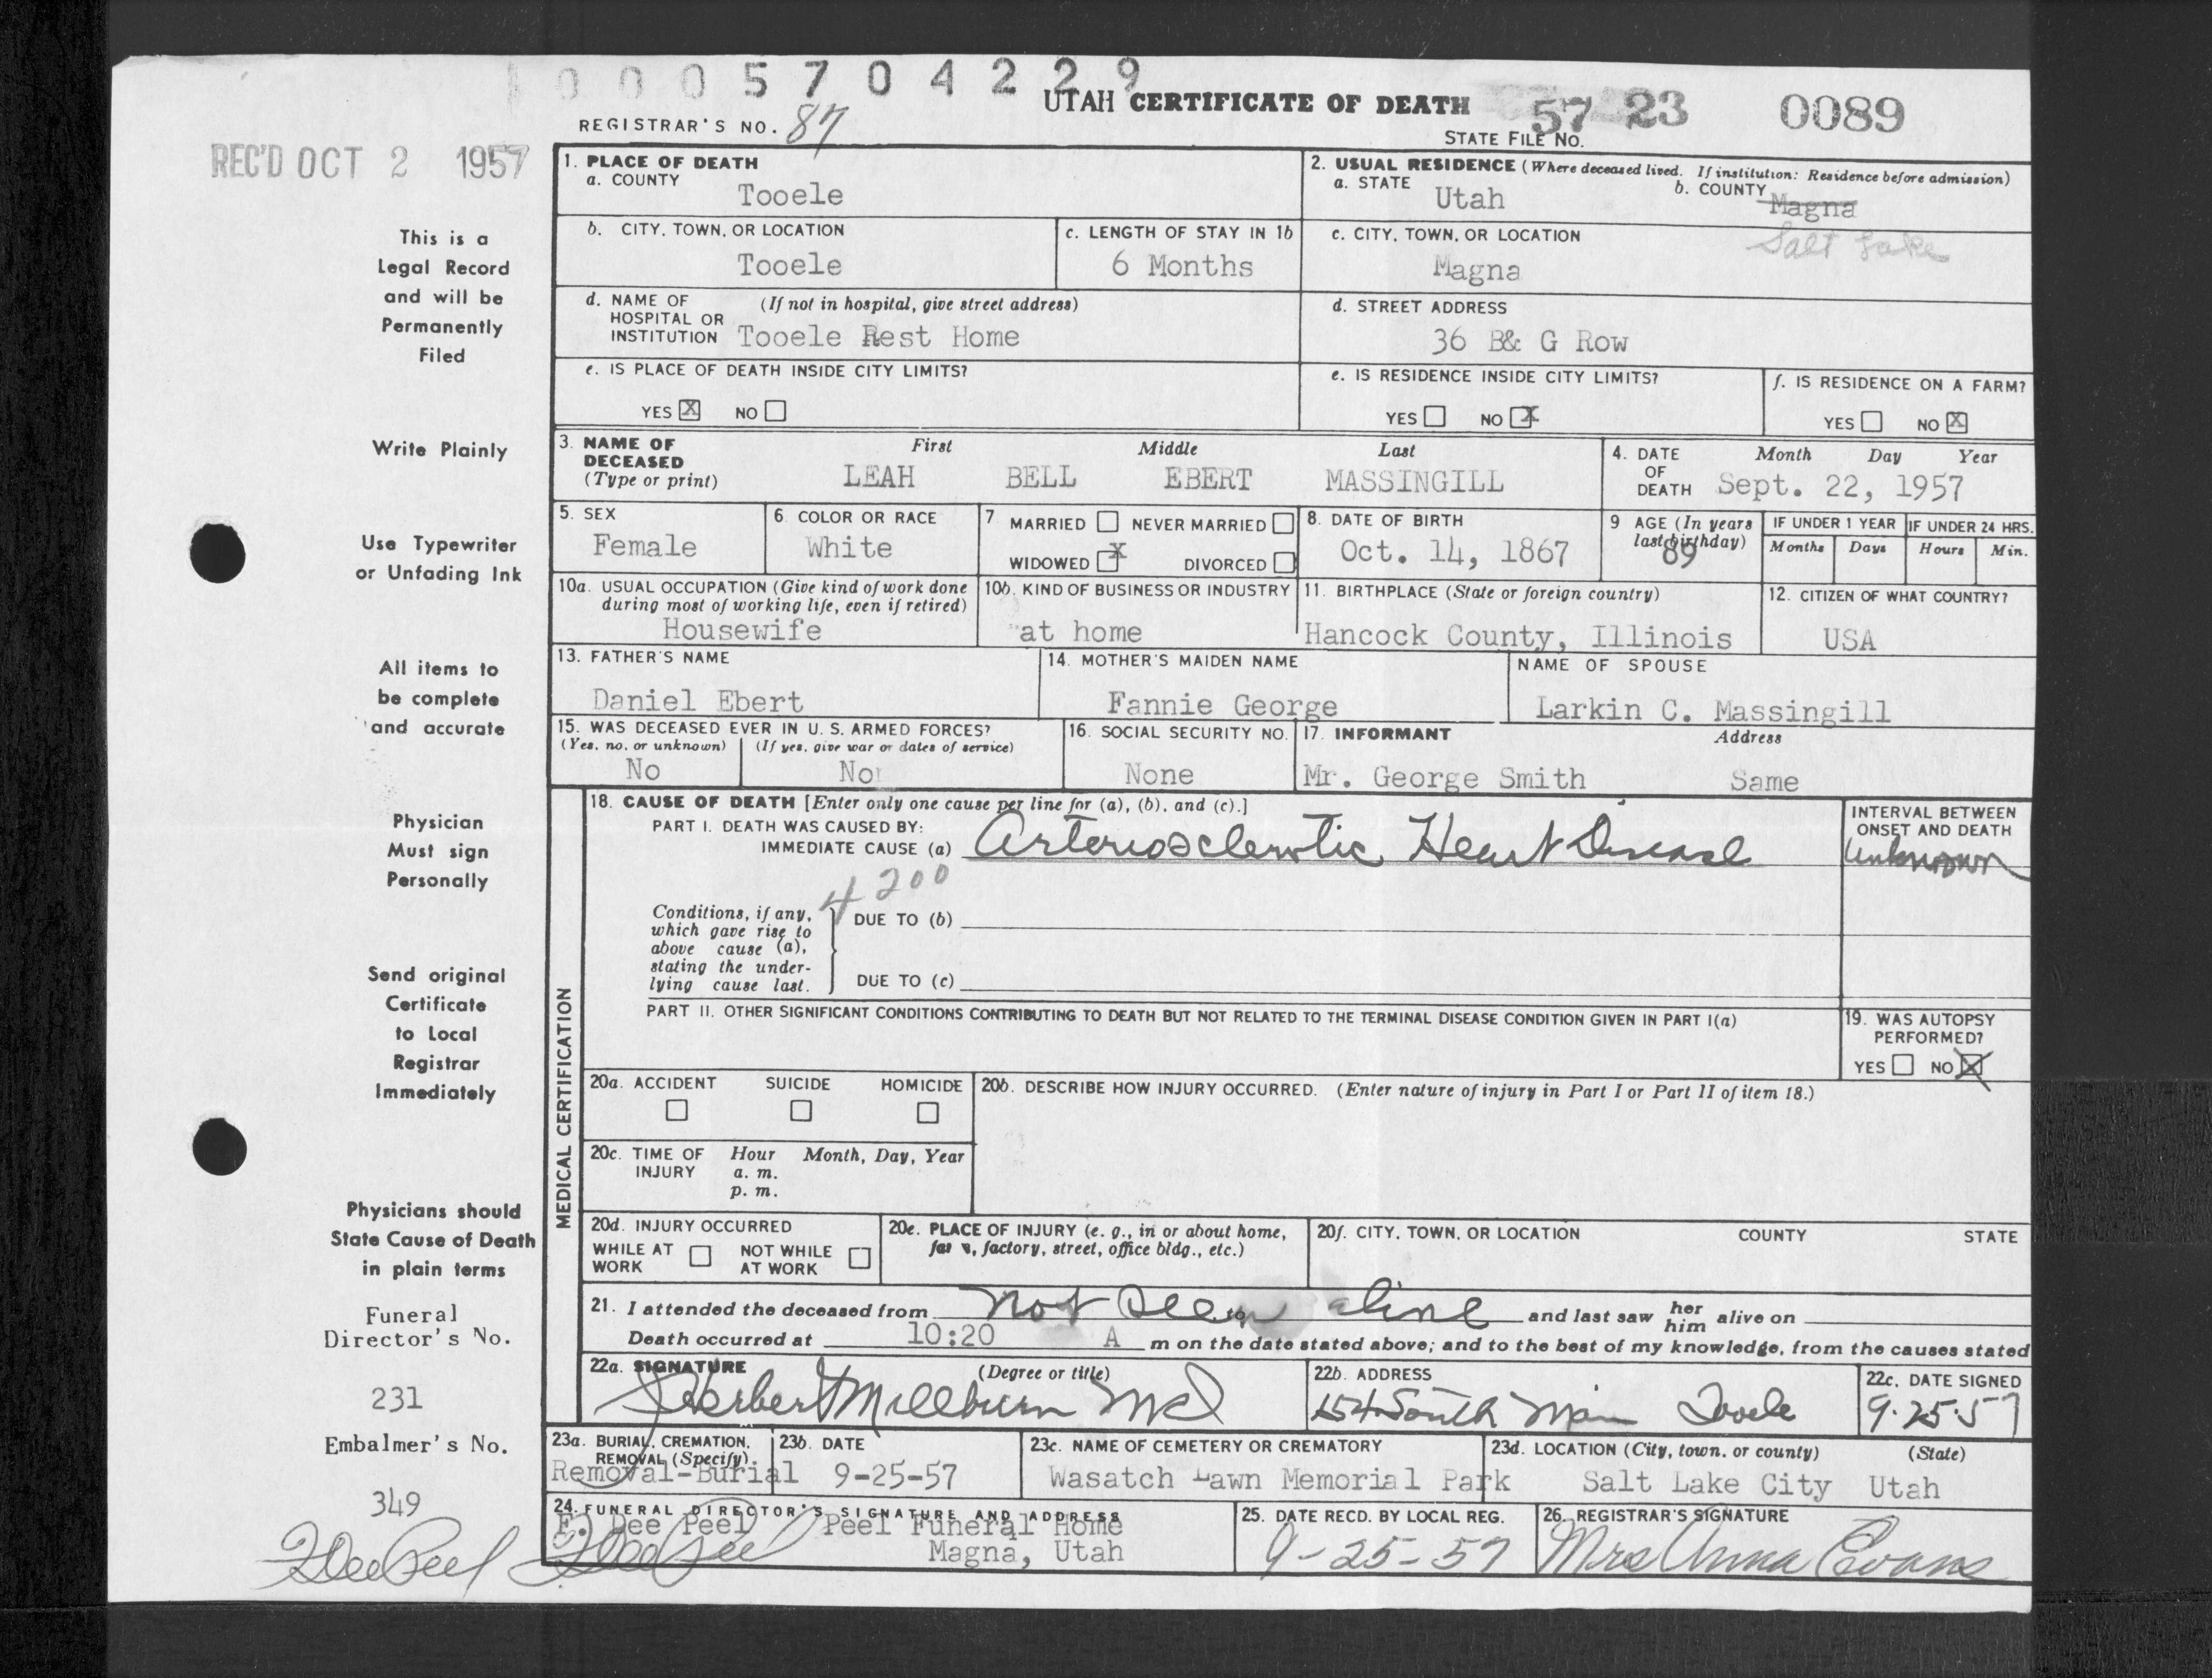 0 0 0 5 7 0 4 2 2 9
UTAH CERTIFICATE OF DEATH
57 23 0089
REGISTRAR'S NO. 87
STATE FILE NO.
REC'D OCT 2 1957
This is a
Legal Record
and will be
Permanently
Filed
Write Plainly
Use Typewriter
or Unfading Ink
All items to
be complete
and accurate
Physician
Must sign
Personally
Send original
Certificate
to Local
Registrar
Immediately
Physicians should
State Cause of Death
in plain terms
Funeral
Director's No.
231
Embalmer's No.
349
1. PLACE OF DEATH
a. COUNTY
Tooele
2. USUAL RESIDENCE (Where deceased lived. If institution: Residence before admission)
a. STATE Utah b. COUNTY Magna
Salt Lake
b. CITY, TOWN, OR LOCATION
Tooele
c. LENGTH OF STAY IN 1b
6 Months
c. CITY, TOWN, OR LOCATION
Magna
d. NAME OF HOSPITAL OR INSTITUTION (If not in hospital, give street address)
Tooele Rest Home
d. STREET ADDRESS
36 B& G Row
e. IS PLACE OF DEATH INSIDE CITY LIMITS?
YES X NO
e. IS RESIDENCE INSIDE CITY LIMITS?
YES NO X
f. IS RESIDENCE ON A FARM?
YES NO X
3. NAME OF DECEASED (Type or print)
First Middle Last
LEAH BELL EBERT MASSINGILL
4. DATE OF DEATH
Month Day Year
Sept. 22, 1957
5. SEX
Female
6. COLOR OR RACE
White
7 MARRIED NEVER MARRIED
WIDOWED X DIVORCED
8. DATE OF BIRTH
Oct. 14, 1867
9 AGE (In years last birthday)
89
IF UNDER 1 YEAR
Months Days
IF UNDER 24 HRS.
Hours Min.
10a. USUAL OCCUPATION (Give kind of work done during most of working life, even if retired)
Housewife
10b. KIND OF BUSINESS OR INDUSTRY
at home
11. BIRTHPLACE (State or foreign country)
Hancock County, Illinois
12. CITIZEN OF WHAT COUNTRY?
USA
13. FATHER'S NAME
Daniel Ebert
14. MOTHER'S MAIDEN NAME
Fannie George
NAME OF SPOUSE
Larkin C. Massingill
15. WAS DECEASED EVER IN U. S. ARMED FORCES?
(Yes, no, or unknown) (If yes, give war or dates of service)
No No
16. SOCIAL SECURITY NO.
None
17. INFORMANT Address
Mr. George Smith Same
MEDICAL CERTIFICATION
18. CAUSE OF DEATH [Enter only one cause per line for (a), (b), and (c).]
PART I. DEATH WAS CAUSED BY:
IMMEDIATE CAUSE (a) Arteriosclerotic Heart Disease
INTERVAL BETWEEN ONSET AND DEATH
Unknown
4200
Conditions, if any, which gave rise to above cause (a), stating the underlying cause last.
DUE TO (b)
DUE TO (c)
PART II. OTHER SIGNIFICANT CONDITIONS CONTRIBUTING TO DEATH BUT NOT RELATED TO THE TERMINAL DISEASE CONDITION GIVEN IN PART I(a)
19. WAS AUTOPSY PERFORMED?
YES NO X
20a. ACCIDENT SUICIDE HOMICIDE
20b. DESCRIBE HOW INJURY OCCURRED. (Enter nature of injury in Part I or Part II of item 18.)
20c. TIME OF INJURY Hour Month, Day, Year
a. m.
p. m.
20d. INJURY OCCURRED
WHILE AT WORK NOT WHILE AT WORK
20e. PLACE OF INJURY (e. g., in or about home, farm, factory, street, office bldg., etc.)
20f. CITY, TOWN, OR LOCATION COUNTY STATE
21. I attended the deceased from not seen alive and last saw her him alive on
Death occurred at 10:20 A m on the date stated above; and to the best of my knowledge, from the causes stated
22a. SIGNATURE (Degree or title)
J Herbert Millburn MD
22b. ADDRESS
154 South Main Tooele
22c. DATE SIGNED
9-25-57
23a. BURIAL, CREMATION, REMOVAL (Specify)
Removal-Burial
23b. DATE
9-25-57
23c. NAME OF CEMETERY OR CREMATORY
Wasatch Lawn Memorial Park
23d. LOCATION (City, town, or county) (State)
Salt Lake City Utah
24. FUNERAL DIRECTOR'S SIGNATURE AND ADDRESS
F. Dee Peel Peel Funeral Home
Magna, Utah
F Dee Peel F Dee Peel
25. DATE RECD. BY LOCAL REG.
9-25-57
26. REGISTRAR'S SIGNATURE
Mrs Anna Evans